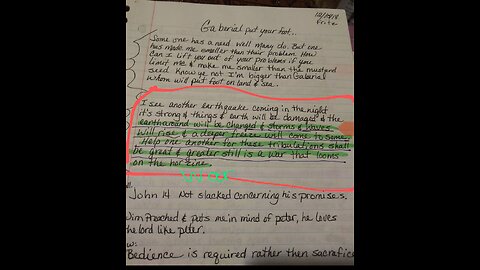 12/29/18
Frite
Gaberial put your foot..
Some one has a need well many do. But one
has made me smaller than their problem How
can I lift you out of your problems if you
limit me & make me smaller than the musterd
seed Know ye not I'm bigger than Gaberial
whom will put foot on land & sea..
I see another earthquake coming in the night
it's strong & things & earth will be damaged & the
earth around will be changed & storms & waves
will rise & a deeper freeze will come to some.
Help one another for these tribulations shall
be great & greater still is a war that looms
on the horizine.
John 14 Not slacked concerning his promises.
Jim Preached & puts me in mind of peter, he loves
the lord like peter.
w:
Bedience is required rather then sacrafice